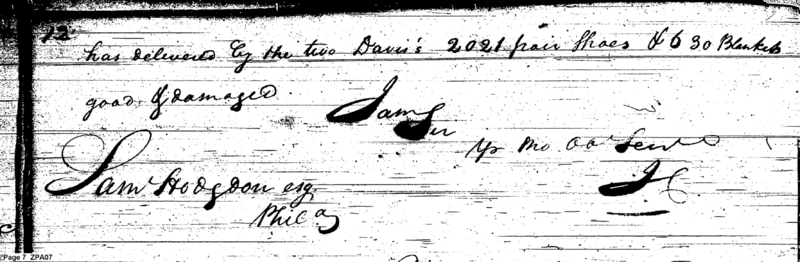 12
has delivered by the two Davis's 2021 pair Shoes & 630 Blankets
good & damaged.
I am Sir
Yr Mo Ob Servt
Saml Hodgdon esq.
JC
Phila
Page 7 ZPA07